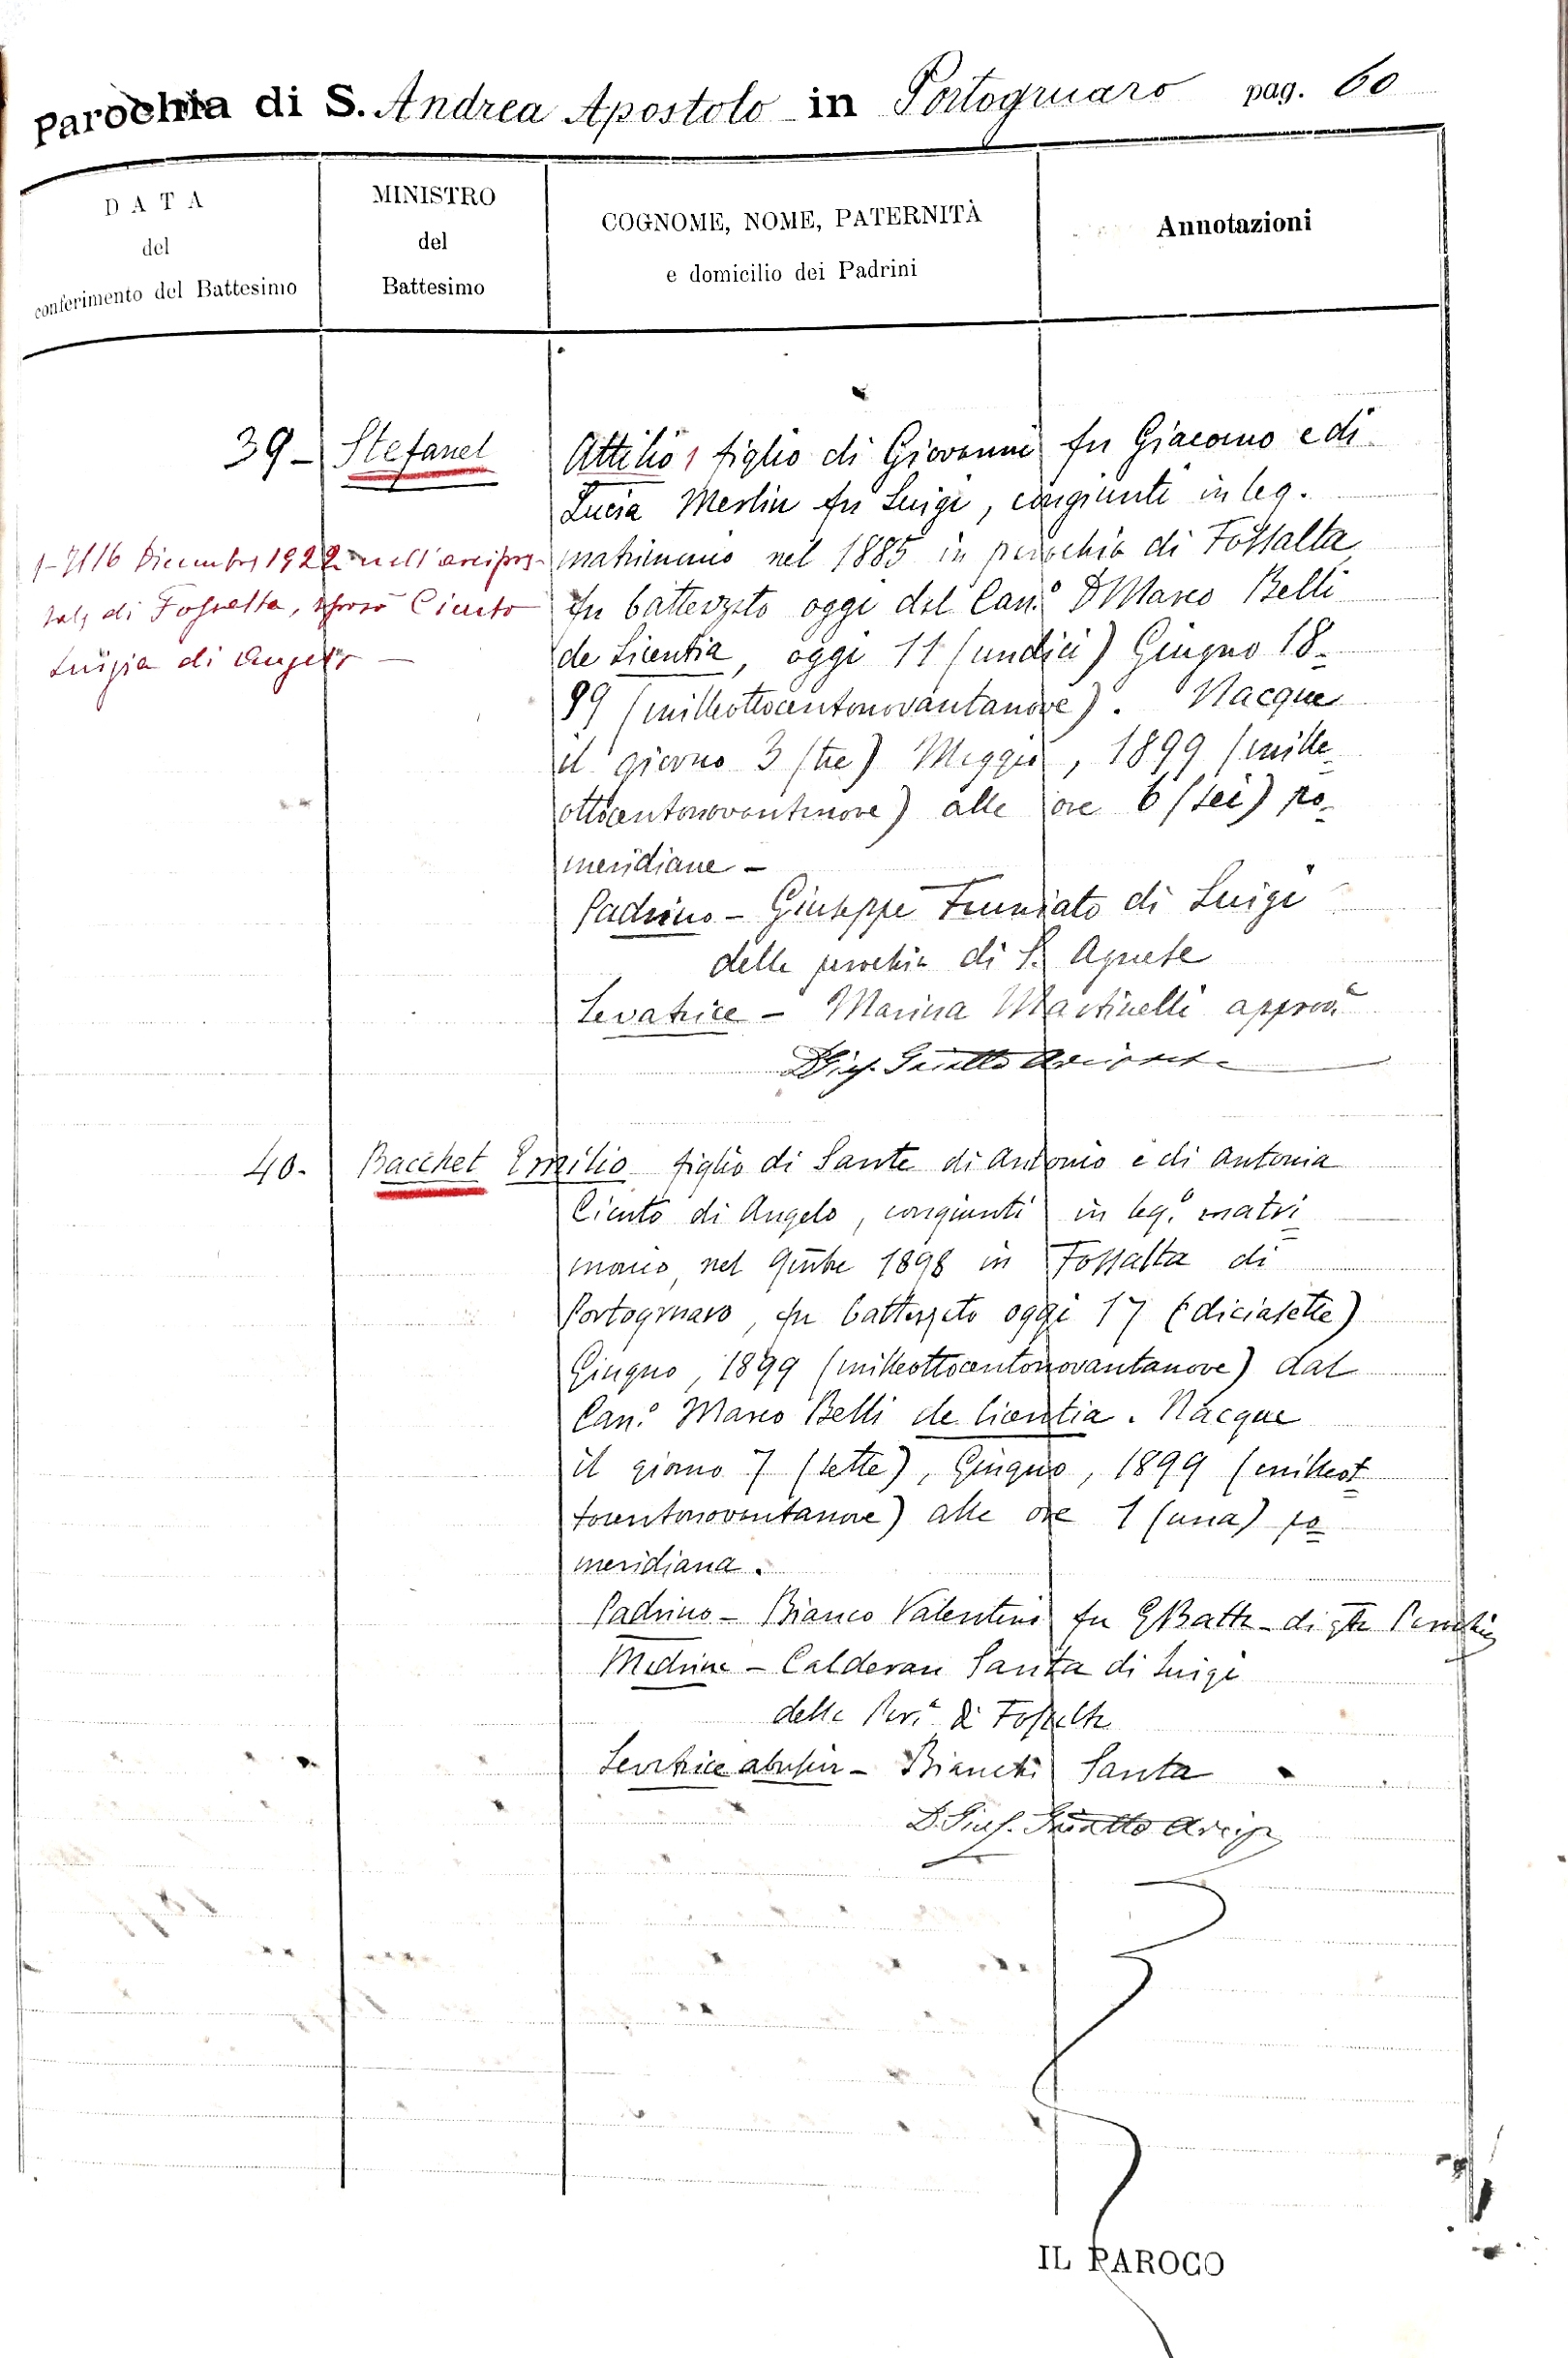 Parochia di S. Andrea Apostolo in Portogruaro pag. 60
DATA
del
conferimento del Battesimo
MINISTRO
del
Battesimo
COGNOME, NOME, PATERNITÀ
e domicilio dei Padrini
Annotazioni
39- Stefanel Attilio 1 figlio di Giovanni fu Giacomo e di
Lucia Merlin fu Luigi, congiunti in leg.
matrimonio nel 1885 in parochia di Fossalta
fu battezzato oggi dal Can.º D Marco Belli
de Licentia, oggi 11 (undici) Giugno 18-
99 (milleottocentonovantanove). Nacque
il giorno 3 (tre) Maggio, 1899 (mille-
ottocentonovantanove) alle ore 6 (sei) po-
meridiane -
Padrino - Giuseppe di Luigi
della parochia di S. Agnese
Levatrice - Marina Martinelli approv.ª
D Gius. Arciprete
1- Il 16 Dicembre 1922 nell'arcipre-
tale di Fossalta, sposò Ciuto
Luigia di Angelo -
40. Bacchet Emilio figlio di Sante di Antonio e di Antonia
Ciuto di Angelo, congiunti in leg.º matri
monio nel 9mbre 1898 in Fossalta di
Portogruaro, fu battezzato oggi 17 (diciasette)
Giugno, 1899 (milleottocentonovantanove) dal
Can.º Marco Belli de licentia. Nacque
il giorno 7 (sette), Giugno, 1899 (milleot
tocentonovantanove) alle ore 1 (una) po
meridiana.
Padrino - Bianco Valentino fu GBatta - di qta Parochia
Madrina - Calderan Santa di Luigi
della Par.ª di Fossalta
Levatrice abusiva - Bianchi Santa
D. Gius. Arcip
IL PAROCO